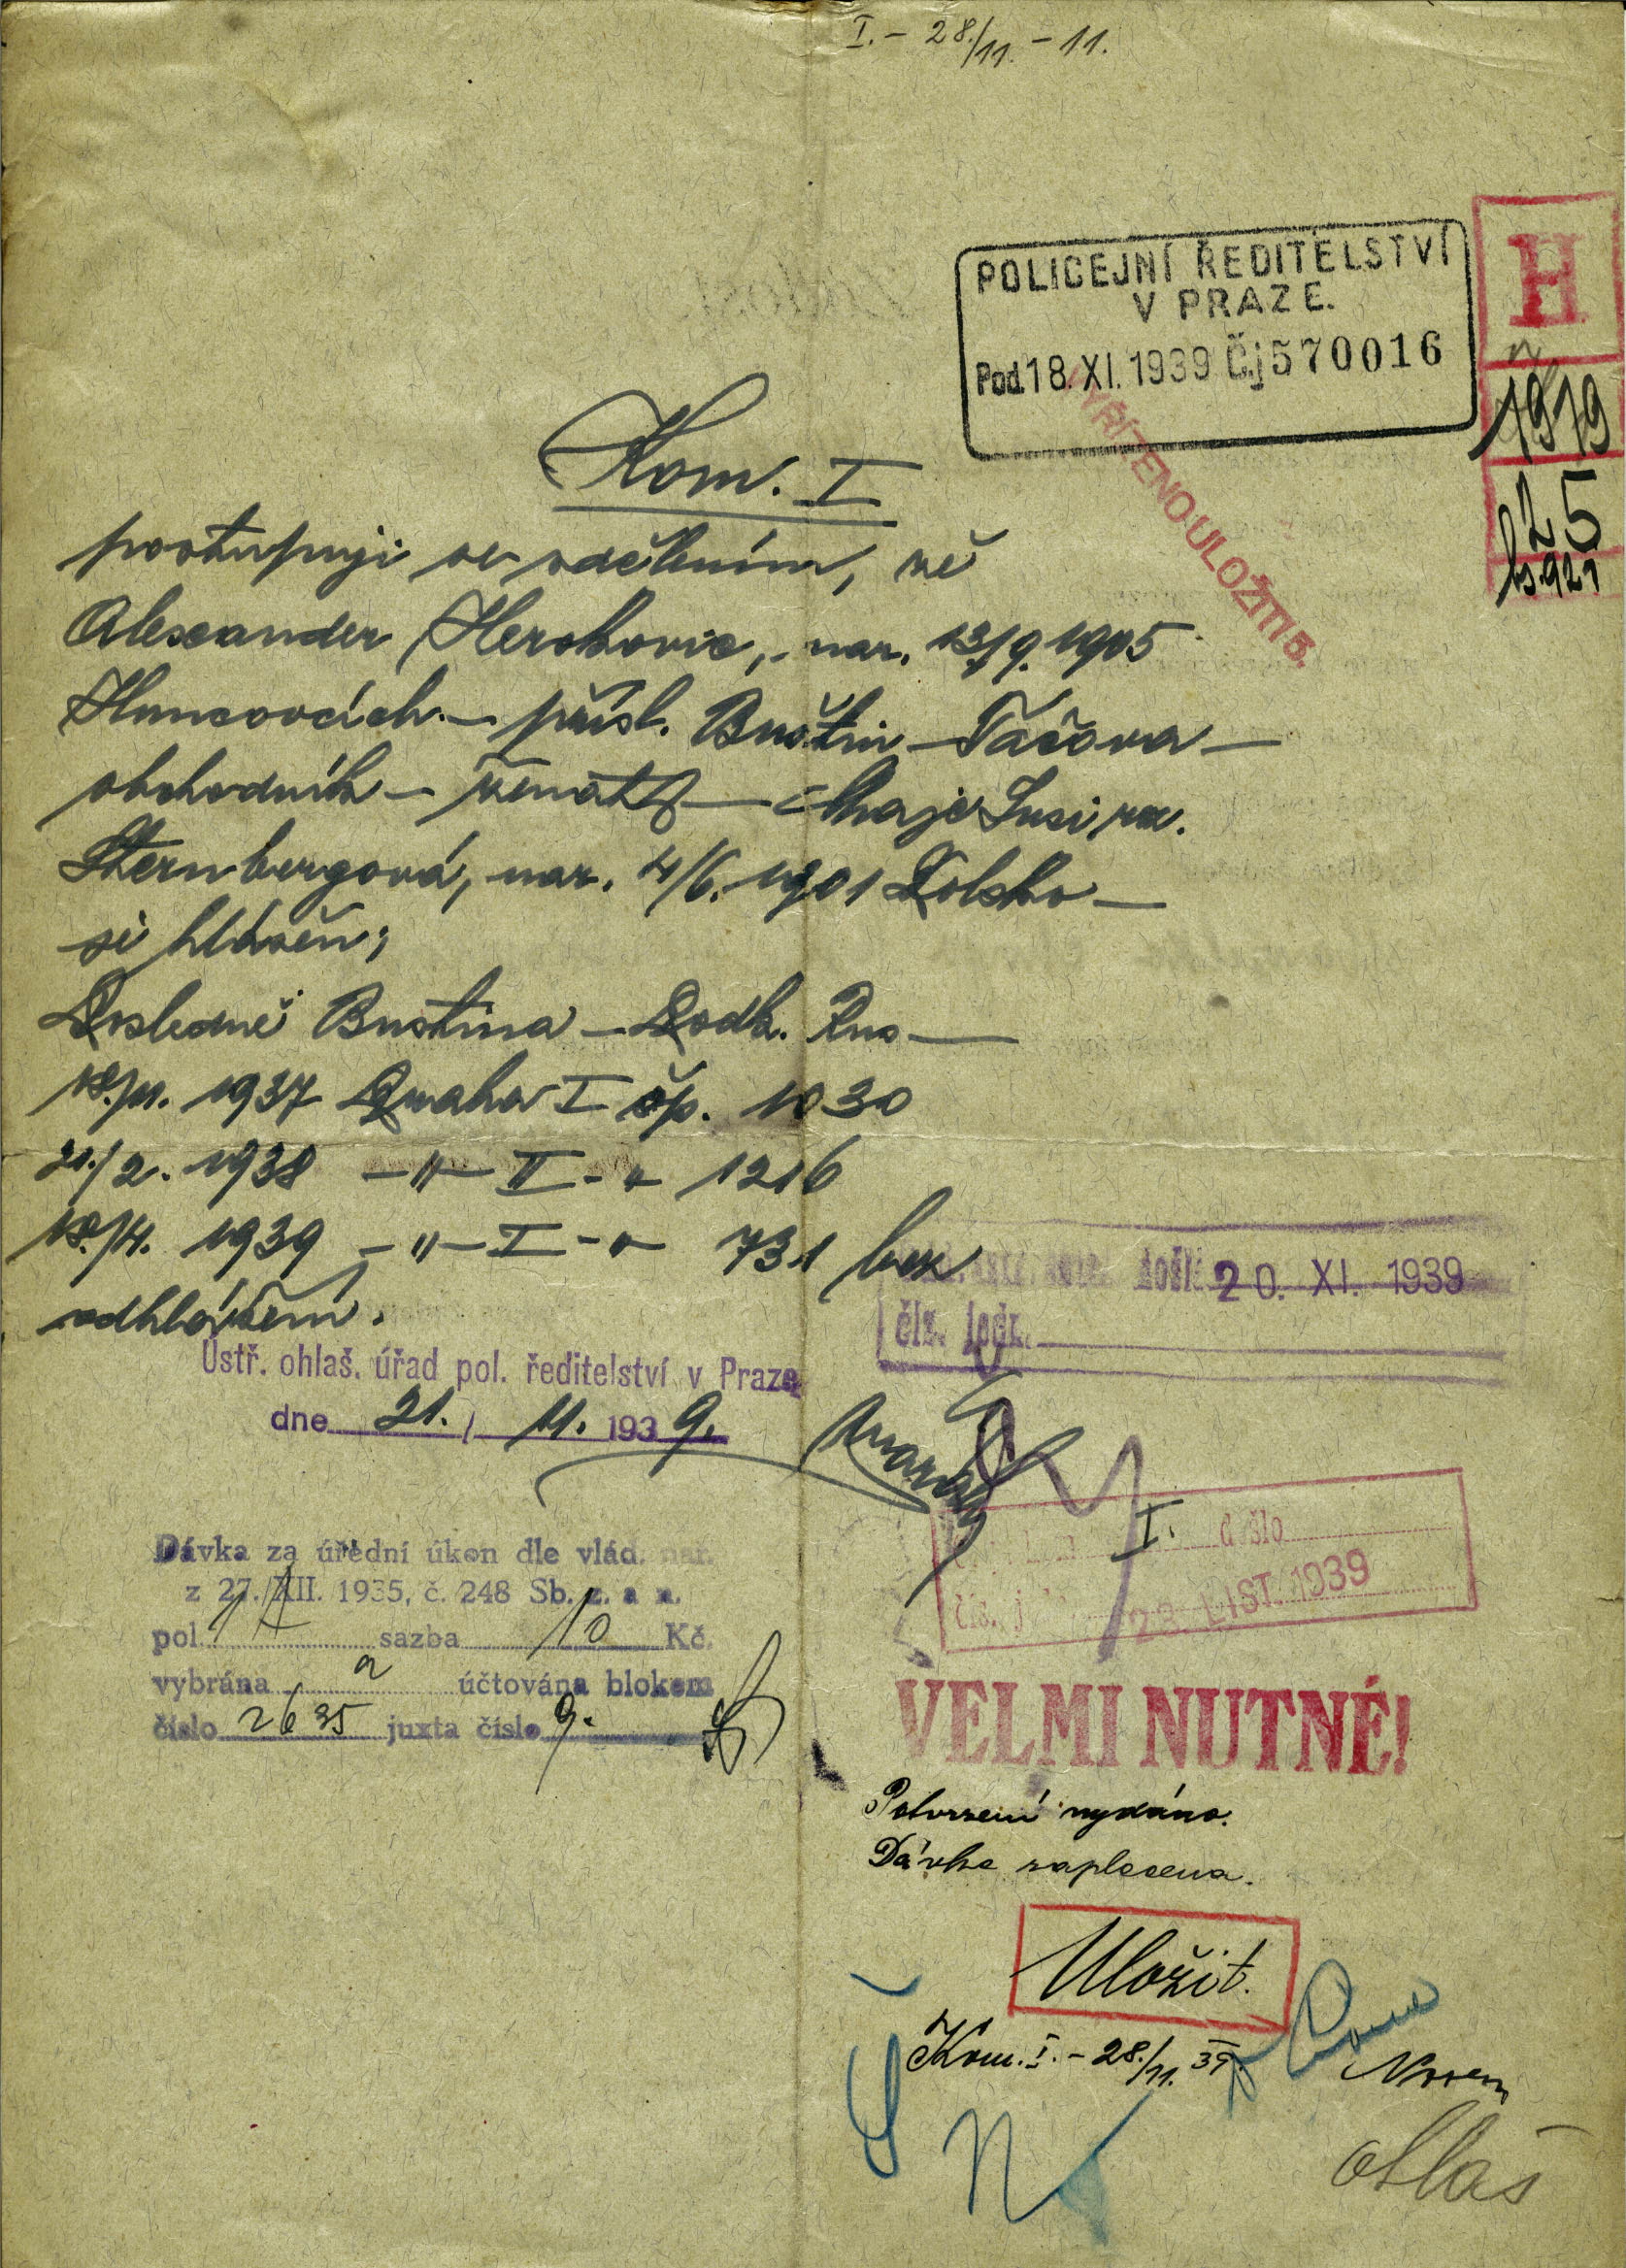 I. - 28./11. - 11.
POLICEJNÍ ŘEDITELSTVÍ
V PRAZE.
Pod. 18. XI. 1939 Č.j 570016
H
1919
25
VYŘÍZENO ULOŽITI 5.
Kom. I
postupuji se sdělením, že
Alexander Herskovic, nar. 13/9. 1905
Huncovcích - přísl. Buštin - Tačova -
obchodník - ženatý - Chaje Susi roz.
Sternbergová, nar. 4/6. 1901 Polsko -
si hlášen;
Posledně Bustina - Podk. Rus -
18./11. 1937 Praha I čp. 1030
21./2. 1938 -"- II -"- 1216
18./4. 1939 -"- I -"- 731 bez
odhlášení.
došlo 20. XI. 1939
čís. jedn.
Ústř. ohlaš. úřad pol. ředitelství v Praze
dne 21. / 11. 1939.
I. došlo
čís. j
23. LIST. 1939
Dávka za úřední úkon dle vlád. nař.
z 27. XII. 1935, č. 248 Sb. z. a n.
pol. sazba 10 Kč.
vybrána a účtována blokem
číslo 2635 juxta číslo 9.
VELMI NUTNÉ!
Potvrzení vydáno.
Dávka zaplacena.
Uložit.
Kom. I. - 28./11. 39.
ohlaš